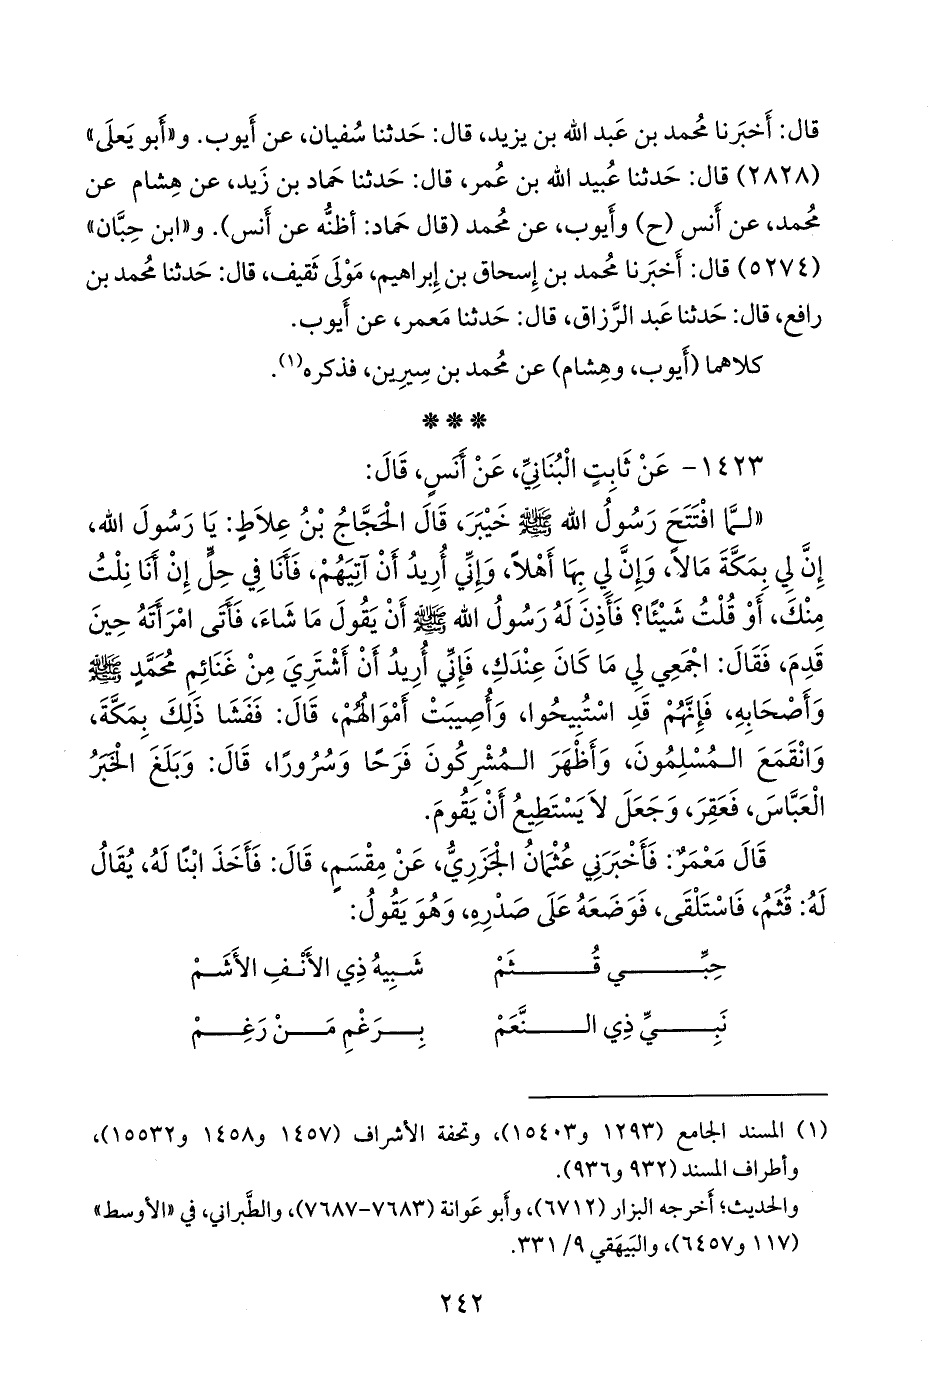 قال: أَخبَرنا مُحمد بن عَبد الله بن يزيد، قال: حَدثنا سُفيان، عن أَيوب. و«أَبو يَعلَى»
(٢٨٢٨) قال: حَدثنا عُبيد الله بن عُمر، قال: حَدثنا حَماد بن زَيد، عن هِشام عن
مُحمد، عن أَنس (ح) وأَيوب، عن مُحمد (قال حَماد: أَظنُّه عن أَنس). و«ابن حِبَّان»
(٥٢٧٤) قال: أَخبَرنا مُحمد بن إِسحاق بن إِبراهيم، مَوْلى ثَقيف، قال: حَدثنا مُحمد بن
رافع، قال: حَدثنا عَبد الرَّزاق، قال: حَدثنا مَعمر، عن أَيوب.
كلاهما (أَيوب، وهِشام) عن مُحمد بن سِيرين، فذكره(١).
***
١٤٢٣- عَنْ ثَابِتٍ الْبُنَانِيِّ، عَنْ أَنَسٍ، قَالَ:
«لـمَّا افْتَتَحَ رَسُولُ الله ﷺ خَيْبَرَ، قَالَ الْحَجَّاجُ بْنُ عِلاَطٍ: يَا رَسُولَ الله،
إِنَّ لِي بِمَكَّةَ مَالاً، وَإِنَّ لِي بِهَا أَهْلاً، وَإِنِّي أُرِيدُ أَنْ آتِيَهُمْ، فَأَنَا فِي حِلٍّ إِنْ أَنَا نِلْتُ
مِنْكَ، أَوْ قُلْتُ شَيْئًا؟ فَأَذِنَ لَهُ رَسُولُ الله ﷺ أَنْ يَقُولَ مَا شَاءَ، فَأَتَى امْرَأَتَهُ حِينَ
قَدِمَ، فَقَالَ: اجْمَعِي لِي مَا كَانَ عِنْدَكِ، فَإِنِّي أُرِيدُ أَنْ أَشْتَرِيَ مِنْ غَنَائِمِ مُحَمَّدٍ ﷺ
وَأَصْحَابِهِ، فَإِنَّهُمْ قَدِ اسْتُبِيحُوا، وَأُصِيبَتْ أَمْوَالُهُمْ، قَالَ: فَفَشَا ذَلِكَ بِمَكَّةَ،
وَانْقَمَعَ الـمُسْلِمُونَ، وَأَظْهَرَ الـمُشْرِكُونَ فَرَحًا وَسُرُورًا، قَالَ: وَبَلَغَ الْخَبَرُ
الْعَبَّاسَ، فَعَقِرَ، وَجَعَلَ لاَ يَسْتَطِيعُ أَنْ يَقُومَ.
قَالَ مَعْمَرٌ: فَأَخْبَرَنِي عُثْمَانُ الْجَزَرِيُّ، عَنْ مِقْسَمٍ، قَالَ: فَأَخَذَ ابْنًا لَهُ، يُقَالُ
لَهُ: قُثَمُ، فَاسْتَلْقَى، فَوَضَعَهُ عَلَى صَدْرِهِ، وَهُوَ يَقُولُ:
حِبِّــي قُــثَمْ شَبِيهُ ذِي الأَنْـفِ الأَشَـمْ
نَبِــيِّ ذِي الــنَّعَمْ بِـرَغْمِ مَـنْ رَغِـمْ
(١) المسند الجامع (١٢٩٣ و١٥٤٠٣)، وتحفة الأشراف (١٤٥٧ و١٤٥٨ و١٥٥٣٢)،
وأطراف المسند (٩٣٢ و٩٣٦).
والحديث؛ أخرجه البزار (٦٧١٢)، وأَبو عَوانة (٧٦٨٣-٧٦٨٧)، والطَّبراني، في «الأوسط»
(١١٧ و٦٤٥٧)، والبَيهَقي ٩/ ٣٣١.
٢٤٢